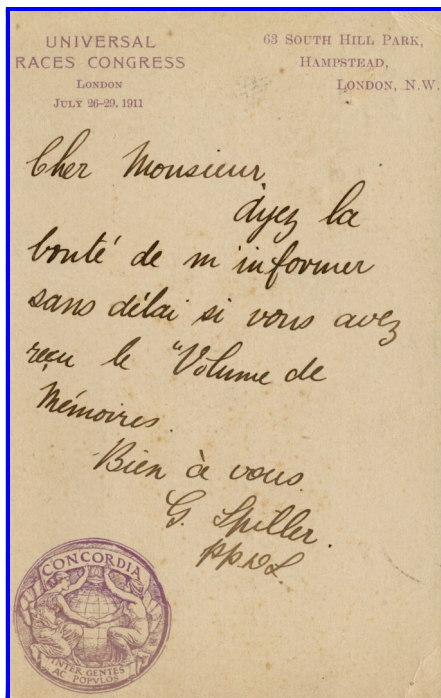 UNIVERSAL
RACES CONGRESS
LONDON
JULY 26-29, 1911
63 SOUTH HILL PARK,
HAMPSTEAD,
LONDON, N.W.
Cher Monsieur
Ayez la
bonté de m'informer
sans délai si vous avez
reçu le "Volume de
Mémoires.
Bien à vous.
G. Spiller.
CONCORDIA
INTER GENTES
AC POPVLOS